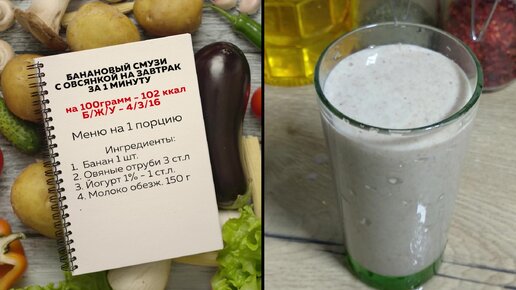 БАНАНОВЫЙ СМУЗИ
С ОВСЯНКОЙ НА ЗАВТРАК
ЗА 1 МИНУТУ
на 100грамм - 102 ккал
Б/Ж/У - 4/3/16
Меню на 1 порцию
Ингредиенты:
1. Банан 1 шт.
2. Овяные отруби 3 ст.л
3. Йогурт 1% - 1 ст.л.
4. Молоко обезж. 150 г
.